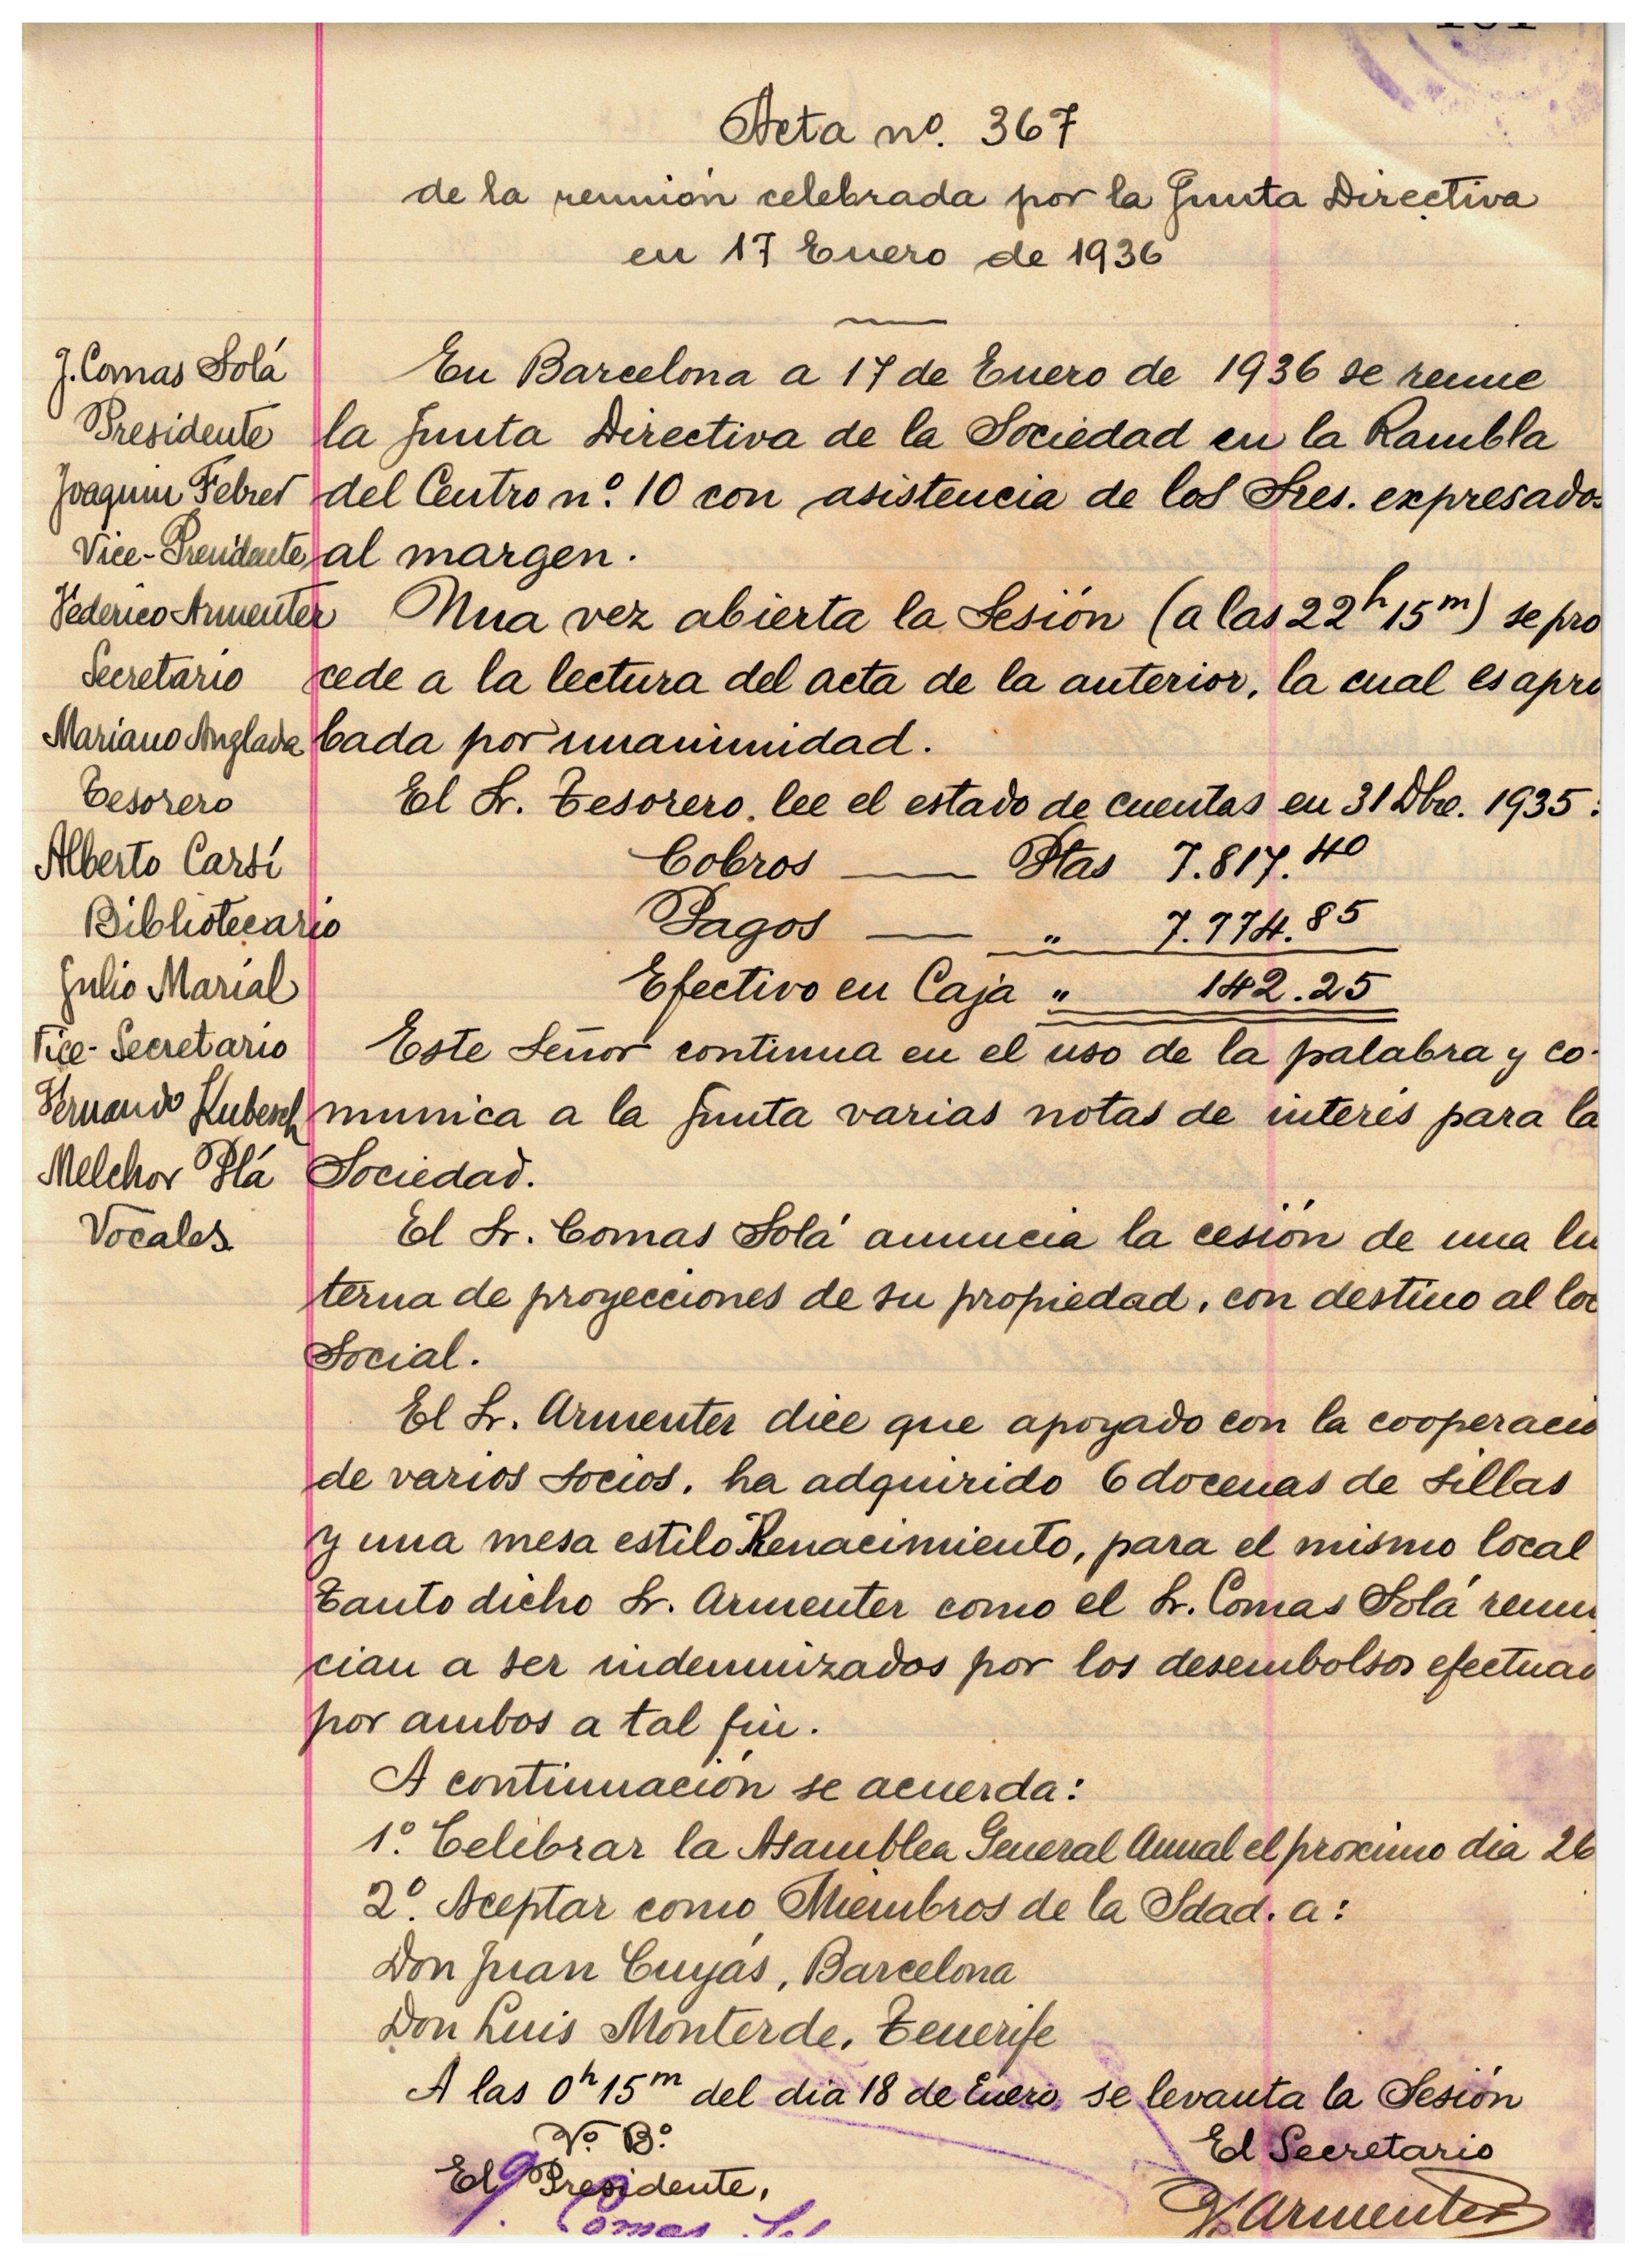 Acta nº. 367
de la reunión celebrada por la Junta Directiva
en 17 Enero de 1936
J. Comas Solá
Presidente
Joaquin Febrer
Vice-Presidente
Federico Armenter
Secretario
Mariano Anglada
Tesorero
Alberto Carsí
Bibliotecario
Julio Marial
Vice-Secretario
Fernando Kubesch
Melchor Plá
Vocales.
En Barcelona a 17 de Enero de 1936 se reune
la Junta Directiva de la Sociedad en la Rambla
del Centro nº. 10 con asistencia de los Sres. expresados
al margen.
Una vez abierta la Sesión (a las 22h 15m) se pro
cede a la lectura del acta de la anterior, la cual es apro
bada por unanimidad.
El Sr. Tesorero, lee el estado de cuentas en 31 Dbre. 1935:
Cobros — Ptas 7.817.40
Pagos — "
Efectivo en Caja " 142.25
Este Señor continua en el uso de la palabra y co-
munica a la Junta varias notas de interés para la
Sociedad.
El Sr. Comas Solá anuncia la cesión de una lin
terna de proyecciones de su propiedad, con destino al loc
Social.
El Sr. Armenter dice que apoyado con la cooperació
de varios socios, ha adquirido 6 docenas de sillas
y una mesa estilo Renacimiento, para el mismo local
Tanto dicho Sr. Armenter como el Sr. Comas Solá renun
cian a ser indemnizados por los desembolsos efectuad
por ambos a tal fin.
A continuación se acuerda:
1º. Celebrar la Asamblea General Anual el proximo dia 26
2º. Aceptar como Miembros de la Sdad. a:
Don Juan Cuyás, Barcelona
Don Luis Monterde, Tenerife
A las 0h 15m del dia 18 de Enero, se levanta la Sesión
Vº. Bº.
El Presidente,
El Secretario
J. Comas Sol
F. Armenter